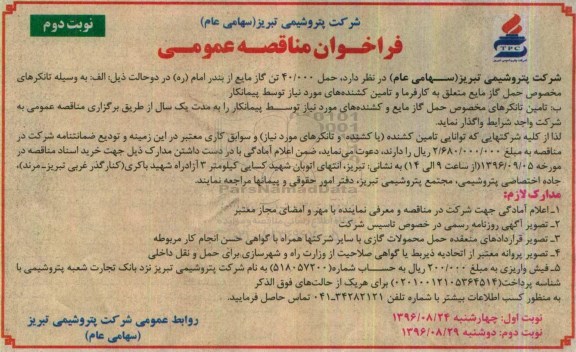 نوبت دوم
شرکت پتروشیمی تبریز(سهامی عام)
TPC
فراخوان مناقصه عمومی
شرکت پتروشیمی تبریز(سهامی عام) در نظر دارد، حمل ۴۰/۰۰۰ تن گاز مایع از بندر امام (ره) در دوحالت ذیل: الف: به وسیله تانکرهای
مخصوص حمل گاز مایع متعلق به کارفرما و تامین کشنده‌های مورد نیاز توسط پیمانکار
ب: تامین تانکرهای مخصوص حمل گاز مایع و کشنده‌های مورد نیاز توسط پیمانکار را به مدت یک سال از طریق برگزاری مناقصه عمومی به
شرکت واجد شرایط واگذار نماید.
لذا از کلیه شرکتهایی که توانایی تامین کشنده (یا کشنده و تانکرهای مورد نیاز) و سوابق کاری معتبر در این زمینه و تودیع ضمانتنامه شرکت در
مناقصه به مبلغ ۲/۶۸۰/۰۰۰/۰۰۰ ریال را دارند، دعوت می‌نماید، ضمن اعلام آمادگی با در دست داشتن مدارک ذیل جهت خرید اسناد مناقصه در
مورخه ۱۳۹۶/۰۹/۰۵(از ساعت ۹ الی ۱۴) به نشانی: تبریز، انتهای اتوبان شهید کسایی کیلومتر ۳ آزادراه شهید باکری(کنارگذر غربی تبریز-مرند)،
جاده اختصاصی پتروشیمی، مجتمع پتروشیمی تبریز، دفتر امور حقوقی و پیمانها مراجعه نمایند.
مدارک لازم:
۱-اعلام آمادگی جهت شرکت در مناقصه و معرفی نماینده با مهر و امضای مجاز معتبر
۲-تصویر آگهی روزنامه رسمی در خصوص تاسیس شرکت
۳-تصویر قراردادهای منعقده حمل محمولات گازی با سایر شرکتها همراه با گواهی حسن انجام کار مربوطه
۴-تصویر پروانه معتبر از اتحادیه ذیربط یا گواهی صلاحیت از وزارت راه و شهرسازی برای حمل و نقل داخلی
۵-فیش واریزی به مبلغ ۲۰۰/۰۰۰ ریال به حساب شماره(۵۱۸۰۵۷۲۰۰) به نام شرکت پتروشیمی تبریز نزد بانک تجارت شعبه پتروشیمی با
شناسه پرداخت(۰۲۰۱۰۰۱۲۱۰۵۳۶۴۵۱۴) برای هریک از حالت‌های فوق الذکر
به منظور کسب اطلاعات بیشتر با شماره تلفن ۳۴۲۸۲۱۲۱-۰۴۱ تماس حاصل فرمایید.
نوبت اول: چهارشنبه ۱۳۹۶/۰۸/۲۴
نوبت دوم: دوشنبه ۱۳۹۶/۰۸/۲۹
روابط عمومی شرکت پتروشیمی تبریز
(سهامی عام)